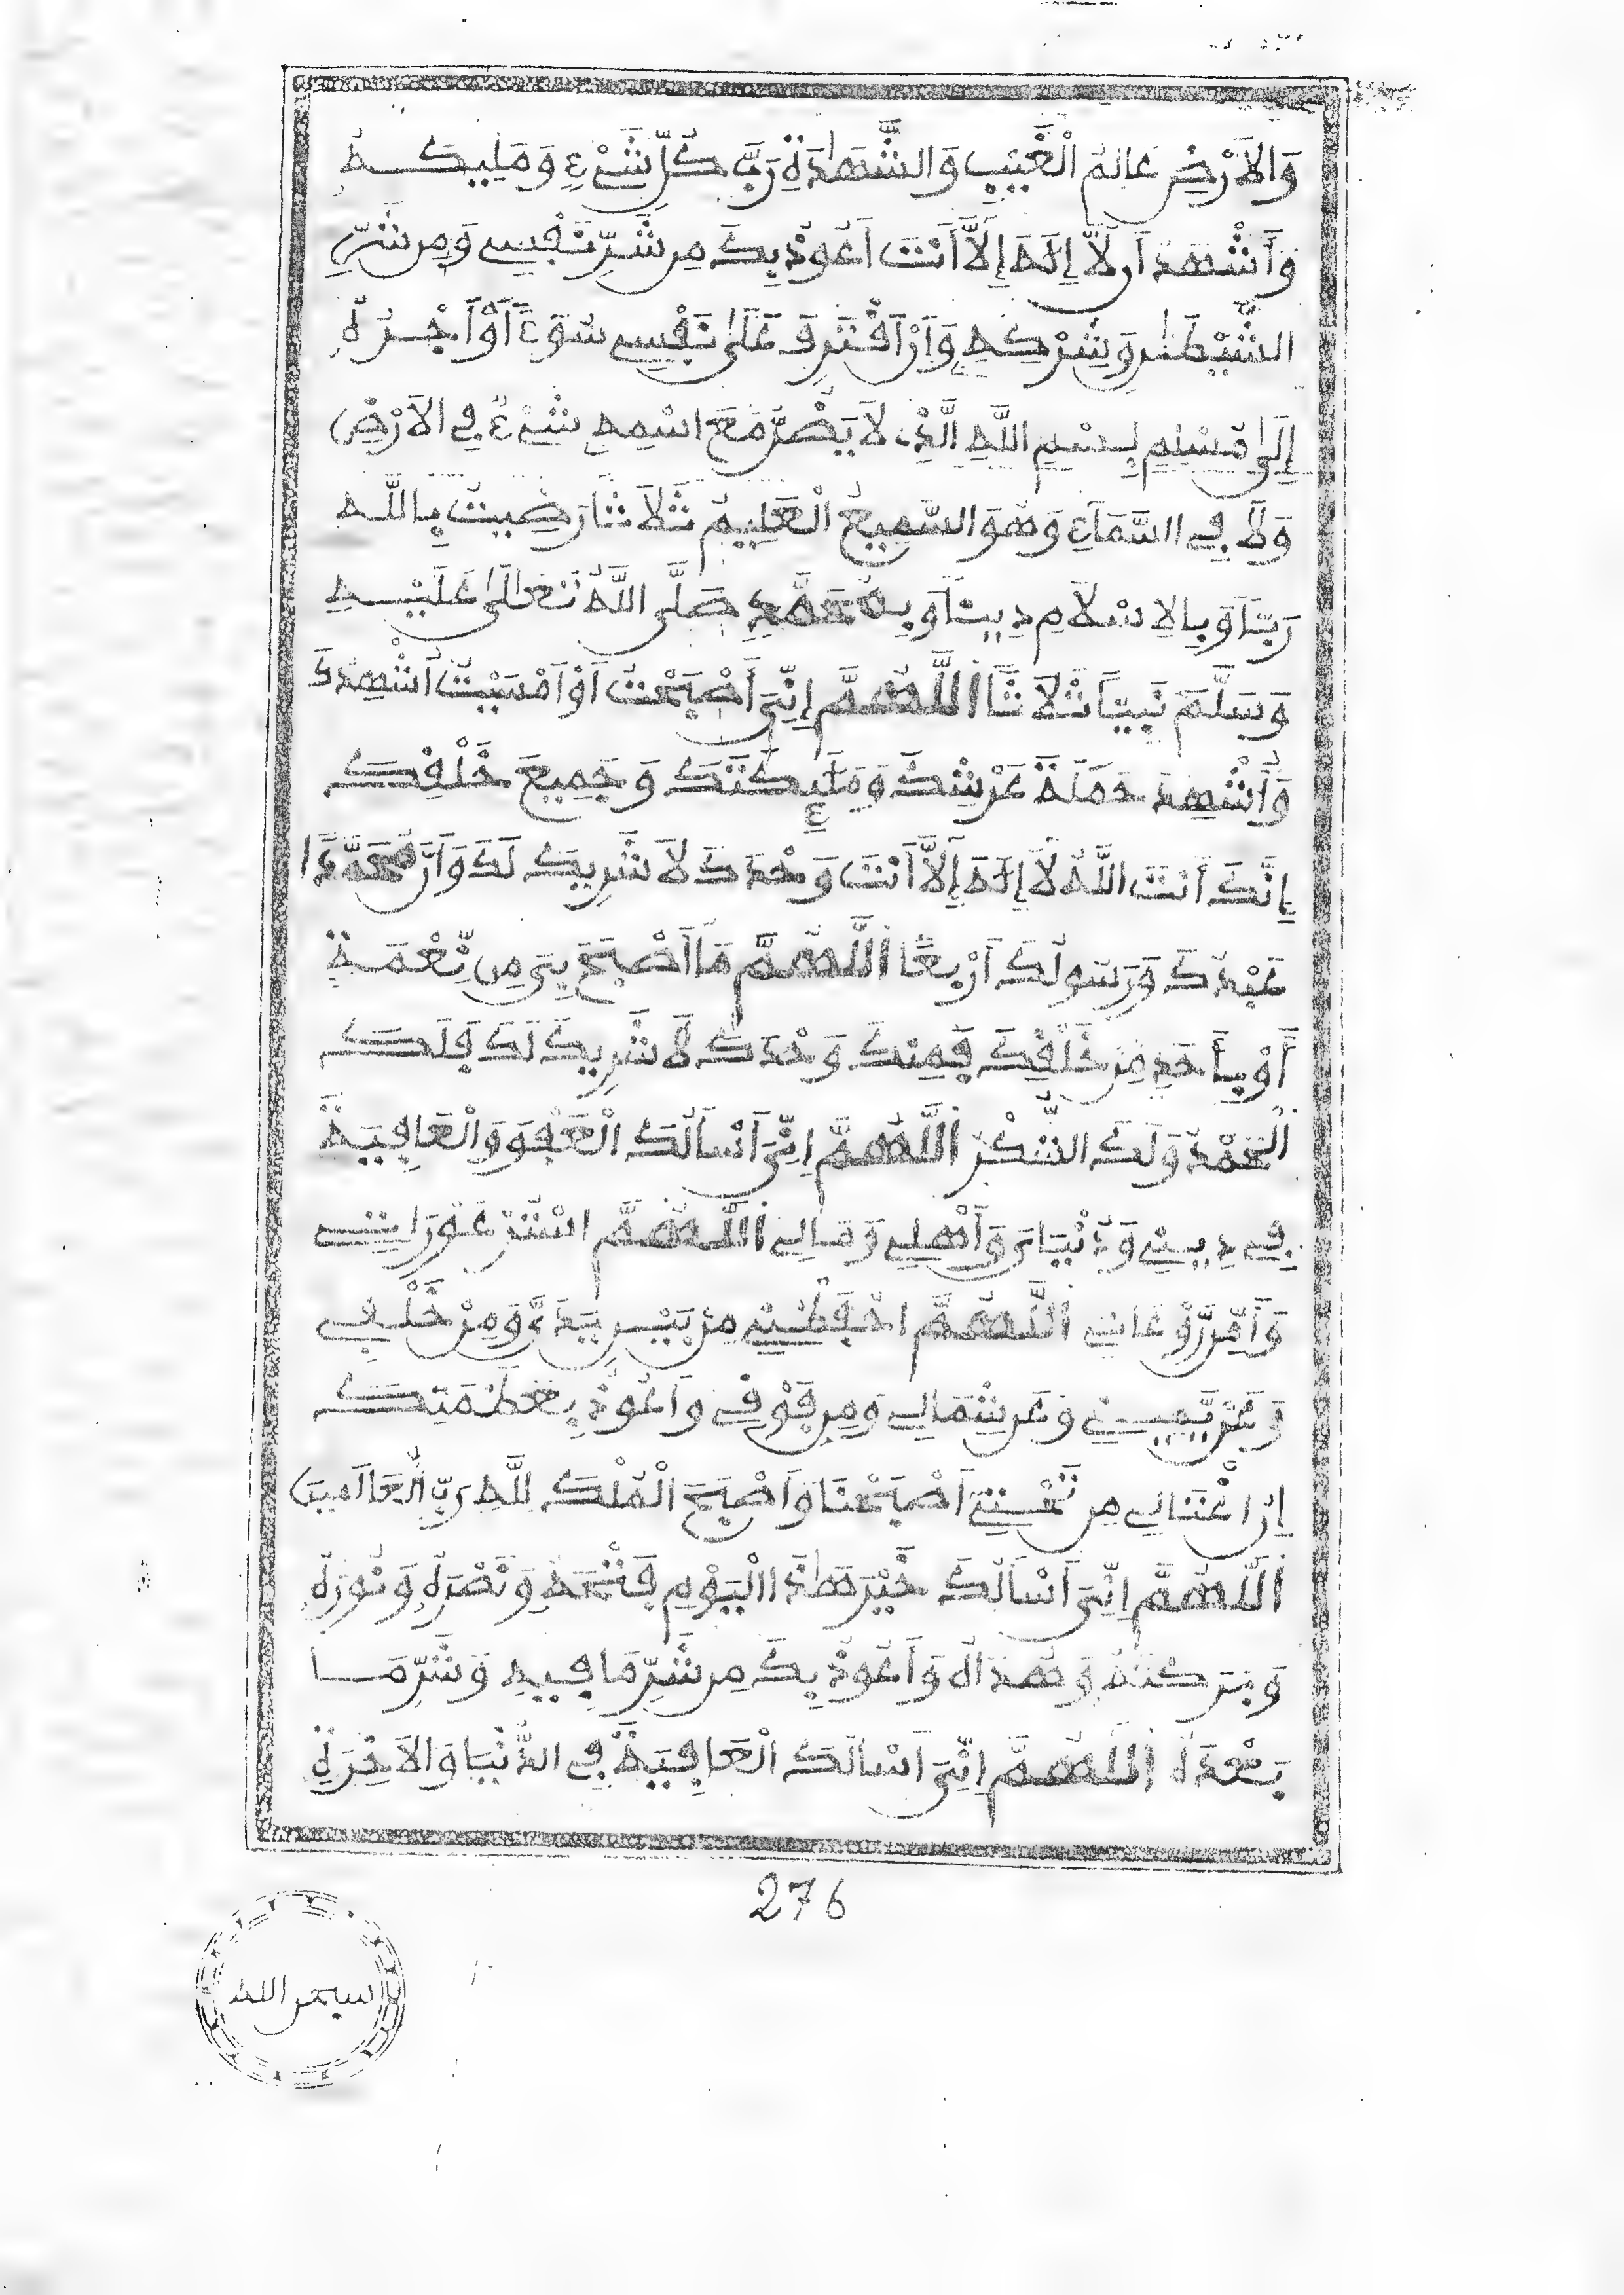 وَالاَرْضِ عَالِمَ الْغَيْبِ وَالشَّهَٰدَةِ رَبَّ كُلِّ شَيْءٍ وَمَلِيكَهُ
وَأَشْهَدُ أَن لَّا إِلَٰهَ إِلَّا أَنْتَ أَعُوذُ بِكَ مِن شَرِّ نَفْسِي وَمِن شَرِّ
الشَّيْطَٰنِ وَشِرْكِهِ وَأَنْ أَقْتَرِفَ عَلَىٰ نَفْسِي سُوءًا أَوْ أَجُرَّهُ
إِلَىٰ مُسْلِمٍ بِسْمِ اللَّهِ الَّذِي لَا يَضُرُّ مَعَ اسْمِهِ شَيْءٌ فِي الاَرْضِ
وَلَا فِي السَّمَاءِ وَهُوَ السَّمِيعُ الْعَلِيمُ ثَلَاثًا رَضِيتُ بِاللَّهِ
رَبًّا وَبِالِاسْلَامِ دِينًا وَبِمُحَمَّدٍ صَلَّى اللَّهُ تَعَالَىٰ عَلَيْهِ
وَسَلَّمَ نَبِيًّا ثَلَاثًا اللَّهُمَّ إِنِّي أَصْبَحْتُ أَوْ أَمْسَيْتُ أُشْهِدُكَ
وَأُشْهِدُ حَمَلَةَ عَرْشِكَ وَمَلَٰئِكَتَكَ وَجَمِيعَ خَلْقِكَ
إِنَّكَ أَنْتَ اللَّهُ لَا إِلَٰهَ إِلَّا أَنْتَ وَحْدَكَ لَا شَرِيكَ لَكَ وَأَنَّ مُحَمَّدًا
عَبْدُكَ وَرَسُولُكَ أَرْبَعًا اللَّهُمَّ مَا أَصْبَحَ بِي مِن نِّعْمَةٍ
أَوْ بِأَحَدٍ مِنْ خَلْقِكَ فَمِنْكَ وَحْدَكَ لَا شَرِيكَ لَكَ فَلَكَ
الْحَمْدُ وَلَكَ الشُّكْرُ اللَّهُمَّ إِنِّي أَسْأَلُكَ الْعَفْوَ وَالْعَافِيَةَ
فِي دِينِي وَدُنْيَايَ وَأَهْلِي وَمَالِي اللَّهُمَّ اسْتُرْ عَوْرَاتِي
وَآمِن رَّوْعَاتِي اللَّهُمَّ احْفَظْنِي مِنْ بَيْنِ يَدَيَّ وَمِنْ خَلْفِي
وَعَنْ يَّمِينِي وَعَن شِمَالِي وَمِن فَوْقِي وَأَعُوذُ بِعَظَمَتِكَ
أَنْ اُغْتَالَ مِن تَحْتِي أَصْبَحْنَا وَأَصْبَحَ الْمُلْكُ لِلَّهِ رَبِّ الْعَالَمِينَ
اللَّهُمَّ إِنِّي أَسْأَلُكَ خَيْرَ هَٰذَا الْيَوْمِ فَتْحَهُ وَنَصْرَهُ وَنُورَهُ
وَبَرَكَتَهُ وَهُدَاهُ وَأَعُوذُ بِكَ مِن شَرِّ مَا فِيهِ وَشَرِّ مَا
بَعْدَهُ اللَّهُمَّ إِنِّي أَسْأَلُكَ الْعَافِيَةَ فِي الدُّنْيَا وَالاَخِرَةِ
276